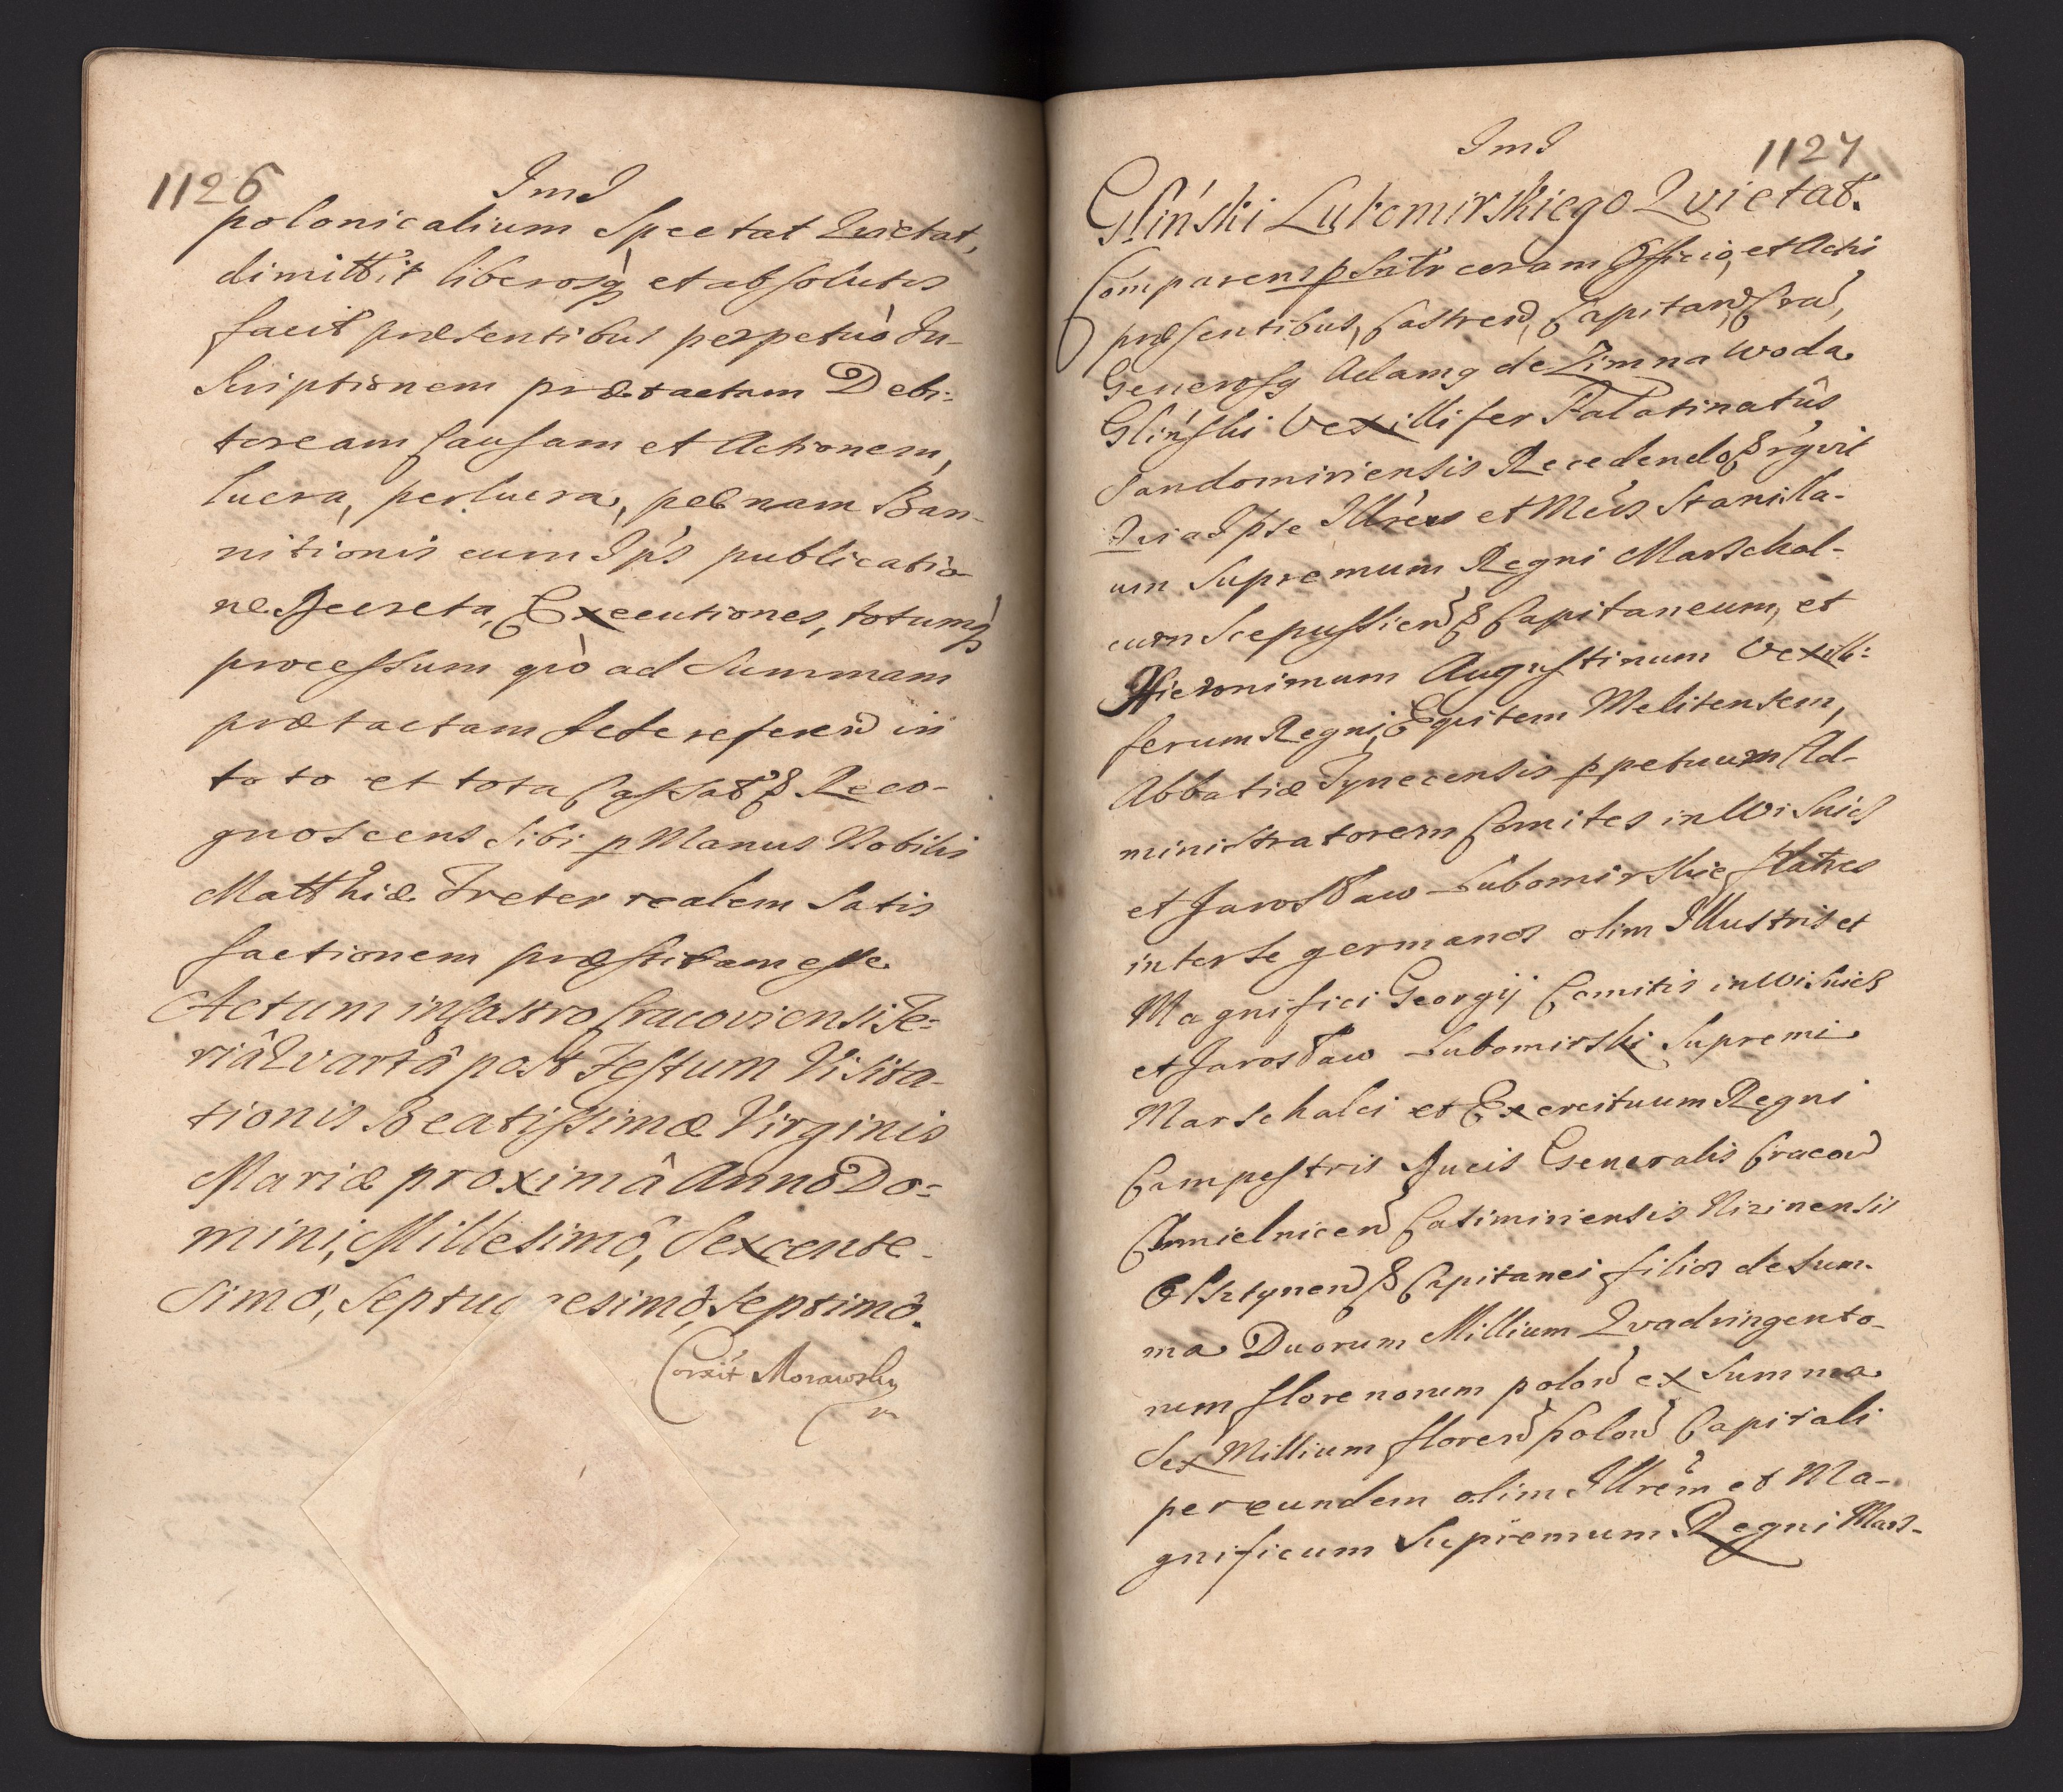 1126
ImI
polonicalium Spectat Quietat,
dimittit liberosq̀ et absolutos
facit præsentibus perpetuò In-
scriptionem prætactam Debi-
toream causam et Actionem,
lucra, perlucra, pœnam Ban-
nitionis cum Ips publicatio-
ne Decreta, Executiones, totumq̀
processum qò ad summam
prætactam sese referen in
toto et tota Cassat & Reco-
gnoscens sibi p Manus Nobilis
Matthiæ Treter realem satis
factionem præstitam esse
Actum in Castro Cracoviensi Fe-
riâ Quartâ post Festum Visita-
tionis Beatissimæ Virginis
Mariæ proximâ Annô Do-
mini, Millesimô, Sexcente-
simô, Septuagesimô, septimô.
Corxit Morawsky
m
ImI
1127
Gliński Lubomirskiego Quietat.
Comparens psnlr coram Officio, et Actis
præsentibus, Castren, Capitan, Cra,
Generosq Adamq de Zimna woda
Gliński Vexillifer Palatinatûs
Sandomiriensis Recedendo & rgvit
Quia Ipse Illres et Mcos Stanisla-
um Supremum Regni Marschal-
cum Scepussien & Capitaneum, et
Hieronimum Augustinum Vexilli-
ferum Regni, Equitem Melitensem,
Abbatiæ Tynecensis ppetuum Ad-
ministratorem Comites in Wisnicz
et Jarosław Lubomirskie fratres
inter se germanos olim Illustris et
Magnifici Georgij Comitis in Wisnicz
et Jarosław Lubomirski Supremi
Marschalci et Exercituum Regni
Campestris Ducis Generalis Cracov
Chmielnicen Casimiriensis Nizinensis
Olsztynen & Capitanei filios de sum-
ma Duorum Millium Quadringento-
rum florenorum polon ex Summa
Sex Millium floren polon Capitali
per eundem olim Illrem et Ma-
gnificum Supremum Regni Mars-